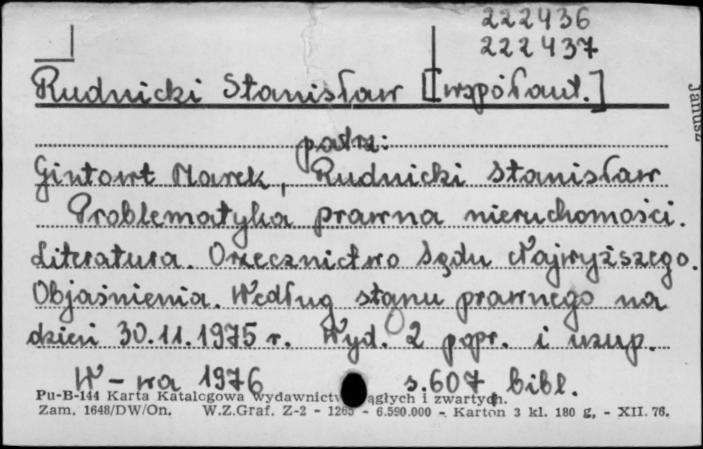 222436
222437
Rudnicki Stanisław [współaut.]
patrz:
Gintowt Marek, Rudnicki Stanisław
Problematyka prawna nieruchomości.
Literatura. Orzecznictwo Sądu Najwyższego.
Objaśnienia. Według stanu prawnego na
dzień 30.11.1975 r. Wyd. 2 popr. i uzup.
W-wa 1976 s. 607, bibl.
Pu-B-144 Karta Katalogowa wydawnictw ągłych i zwartych.
Zam. 1648/DW/On. W.Z.Graf. Z-2 - 1265 - 6.590.000 - Karton 3 kl. 180 g, - XII. 76.
Janusz